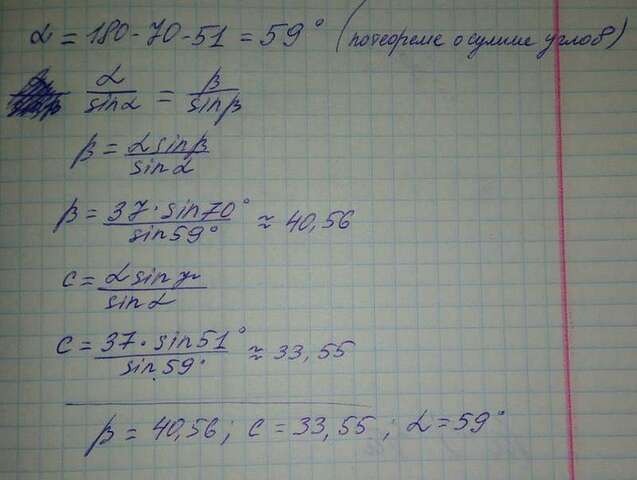 α = 180 - 70 - 51 = 59° (по теореме о сумме углов)
α/sinα = β/sinβ
β = α sinβ/sinα
β = 37 · sin70°/sin59° ≈ 40,56
c = α sinγ/sinα
c = 37 · sin51°/sin59° ≈ 33,55
β = 40,56; c = 33,55; α = 59°